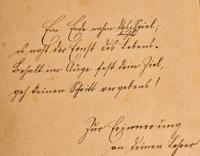 Ein Ende nahm das Spiel;
es naht der Ernst des Lebens.
Behalt im Auge fest dein Ziel,
geh keinen Schritt vergebens!
Zur Erinnerung
an deinen Lehrer